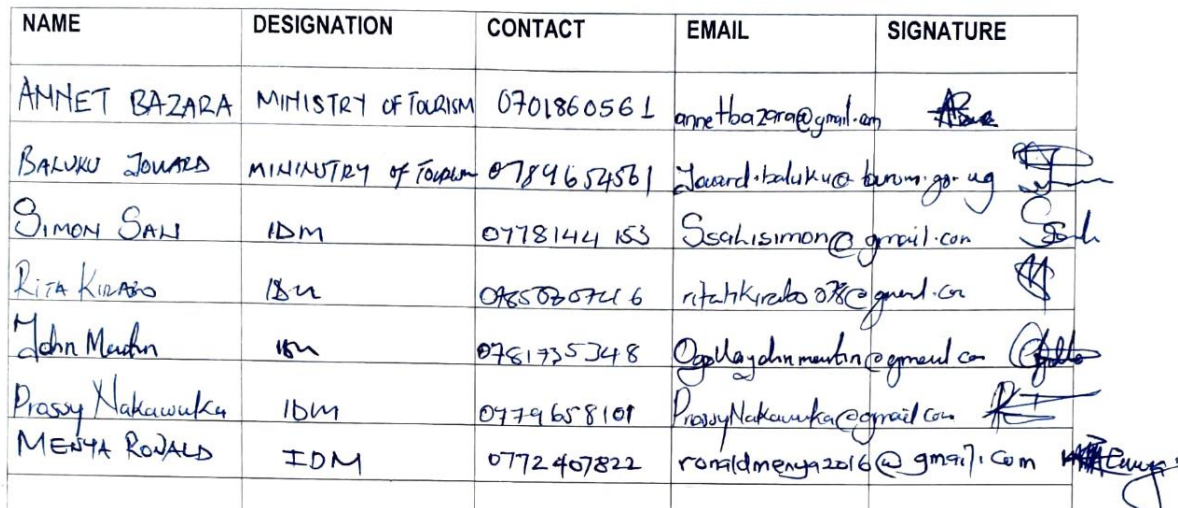 NAME DESIGNATION CONTACT EMAIL SIGNATURE
ANNET BAZARA MINISTRY OF TOURISM 0701860561 annetbazara@gmail.com
BALUKU JOWARD MININSTRY of TOURISM 0789654561 Joward.baluku@
SIMON SALI IDM 0778144153 Ssalisimon@gmail.com
RITA KIRABO
John Martin 0781735348
Prossy Nakawuka IDM 0779658101 ProssyNakawuka@gmail.com
MENYA RONALD IDM 0772407822 ronaldmenya2016@gmail.com